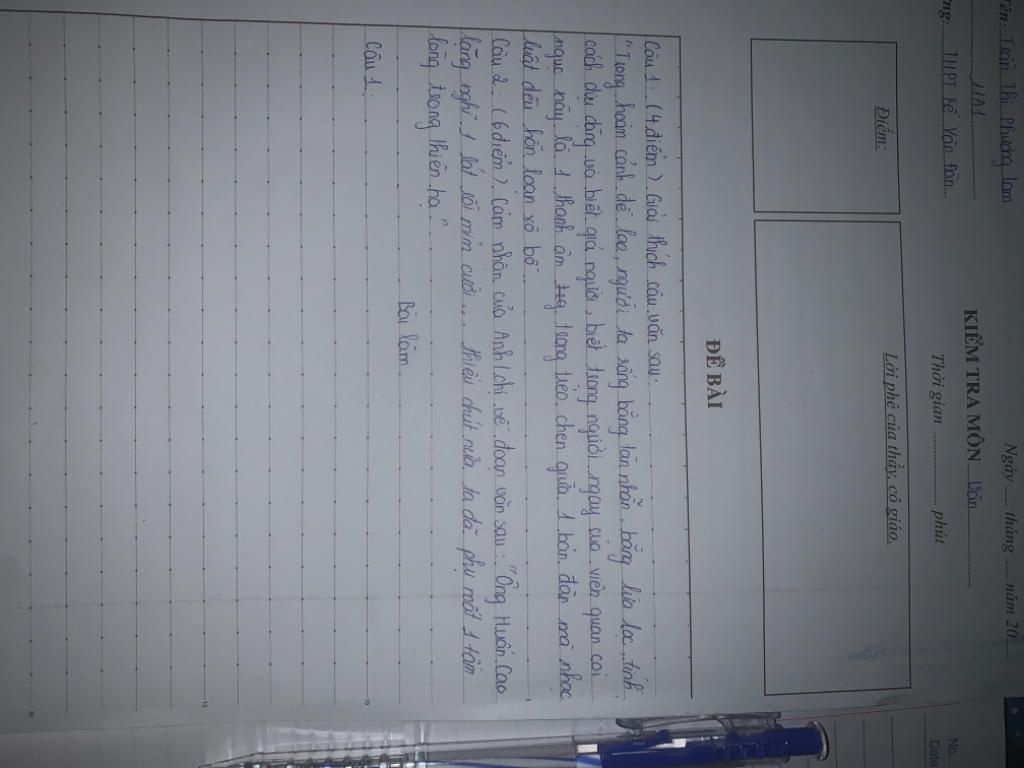 Tên: Trần Thị Phương Lam
11A1
THPT Kẻ Văn Đồn
Ngày ...... tháng ...... năm 20
KIỂM TRA MÔN Văn
Thời gian ............... phút
Điểm:
Lời phê của thầy, cô giáo.
ĐỀ BÀI
Câu 1. (4 điểm). Giải thích câu văn sau.
"Trong hoàn cảnh đề lao, người ta sống bằng tàn nhẫn, bằng lừa lọc, tính
cách dịu dàng và biết giá người, biết trọng người ngay của viên quan coi
ngục này là 1 thanh âm trong trẻo chen giữa 1 bản đàn mà nhạc
luật đều hỗn loạn xô bồ.
Câu 2. (6 điểm). Cảm nhận của Anh/chị về đoạn văn sau: "Ông Huấn Cao
lặng nghĩ 1 lát rồi mỉm cười... thiếu chút nữa ta đã phụ mất 1 tấm
lòng trong thiên hạ."
Bài làm
Câu 1.
5
10
15
20
No.
Date